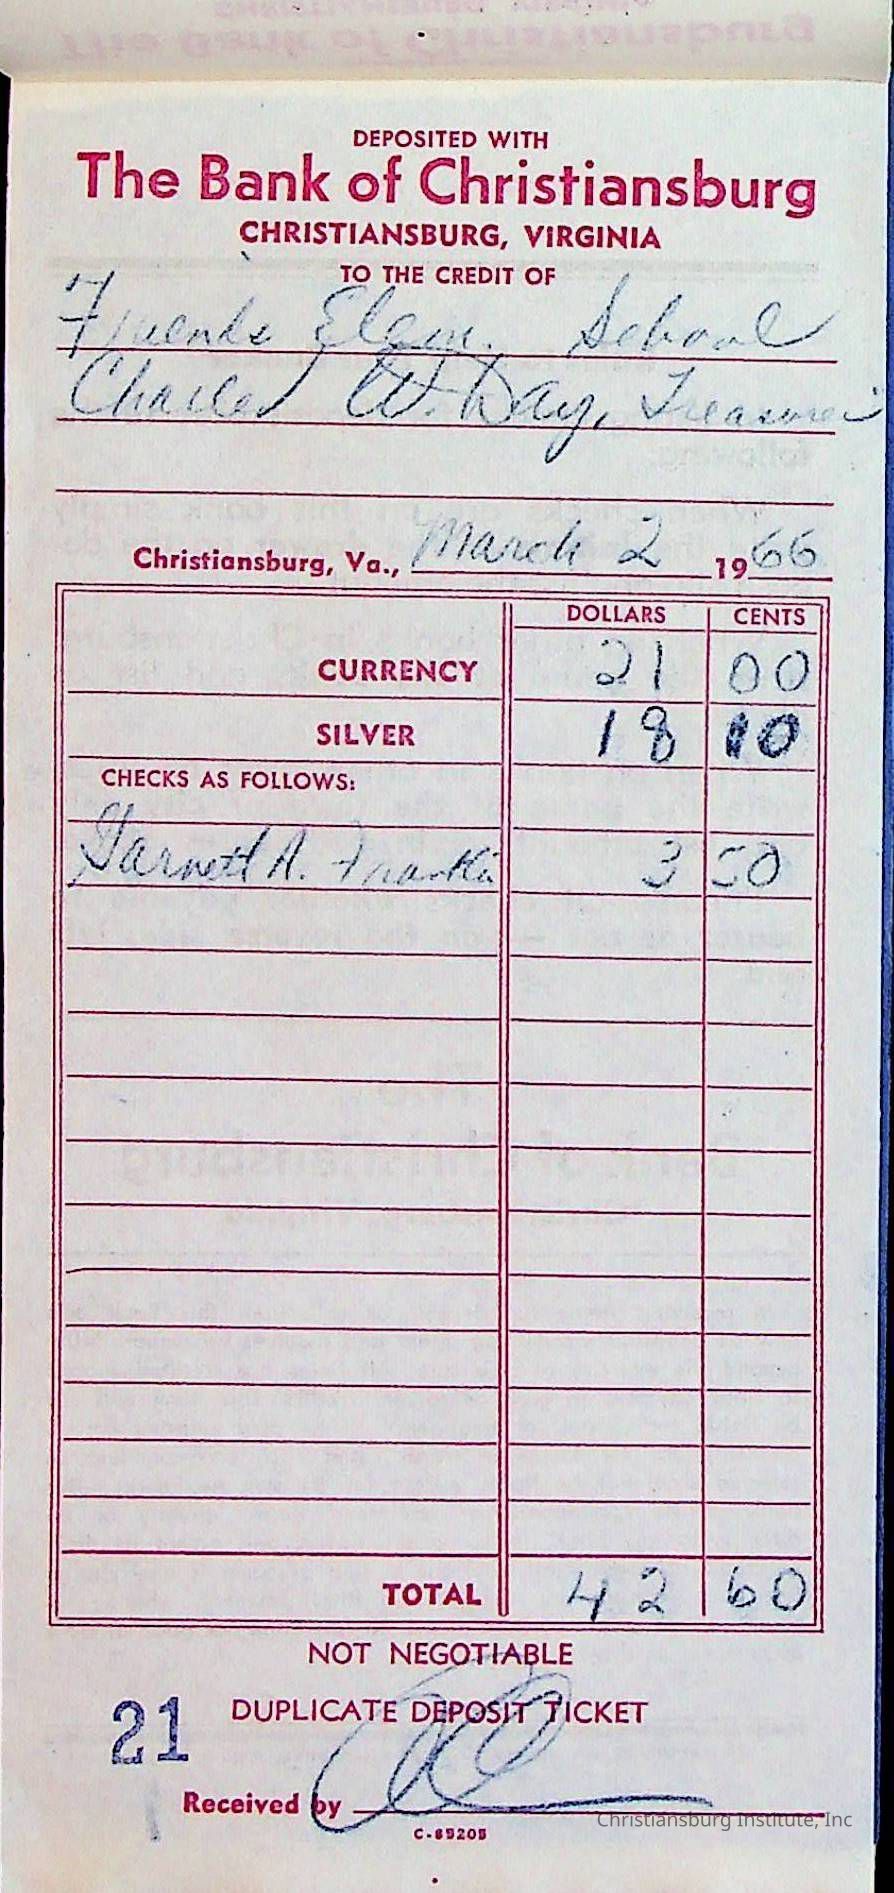 DEPOSITED WITH
The Bank of Christiansburg
CHRISTIANSBURG, VIRGINIA
TO THE CREDIT OF
Friends Elem. School
Charles W. Day, Treasurer
Christiansburg, Va., March 2 1966
DOLLARS CENTS
CURRENCY 21 00
SILVER 18 10
CHECKS AS FOLLOWS:
Garnett A. 3 50
TOTAL 42 60
NOT NEGOTIABLE
DUPLICATE DEPOSIT TICKET
21
Received by
Christiansburg Institute, Inc
C-69205